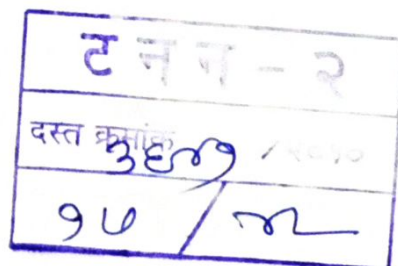 ट न न - २
दस्त क्रमांक ३६४१ /२०१०
१७ / ४८